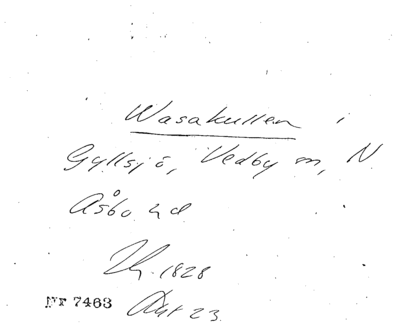 Wasakullen i
Gyllsjö, Vedby sn, N
Åsbo hd
1828
Nr 7463
23